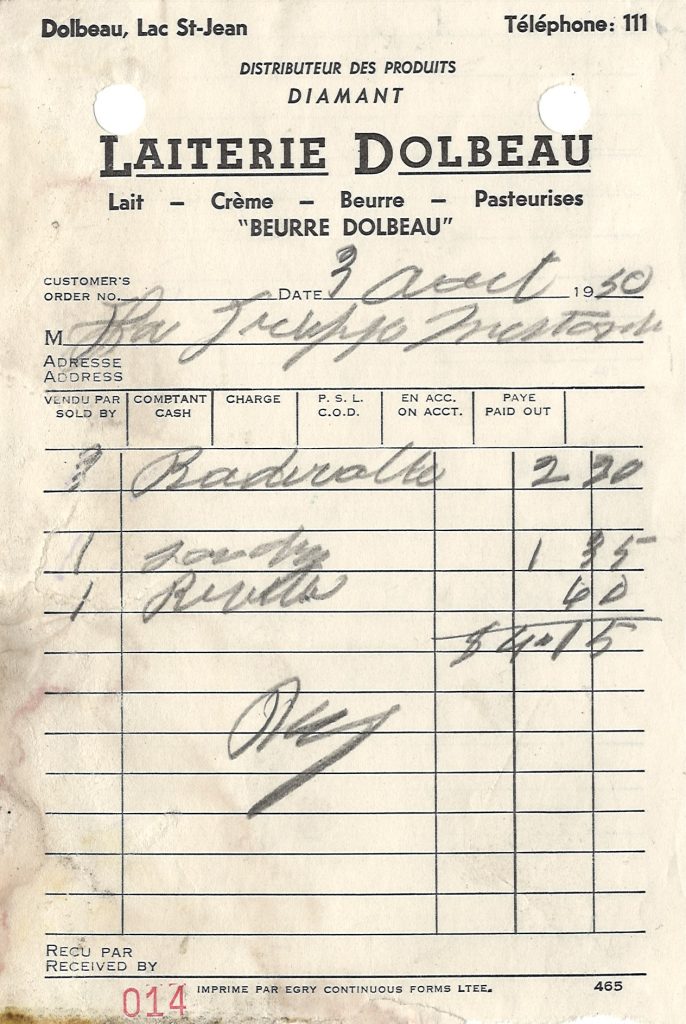 Dolbeau, Lac St-Jean
Téléphone: 111
DISTRIBUTEUR DES PRODUITS
DIAMANT
LAITERIE DOLBEAU
Lait – Crème – Beurre – Pasteurises
"BEURRE DOLBEAU"
CUSTOMER'S
ORDER NO. DATE 3 aout 1950
M
ADRESSE
ADDRESS
VENDU PAR COMPTANT CHARGE P. S. L. EN ACC. PAYE
SOLD BY CASH C.O.D. ON ACCT. PAID OUT
2 20
1 1 35
1 60
$4.15
REÇU PAR
RECEIVED BY
014 IMPRIME PAR EGRY CONTINUOUS FORMS LTEE. 465